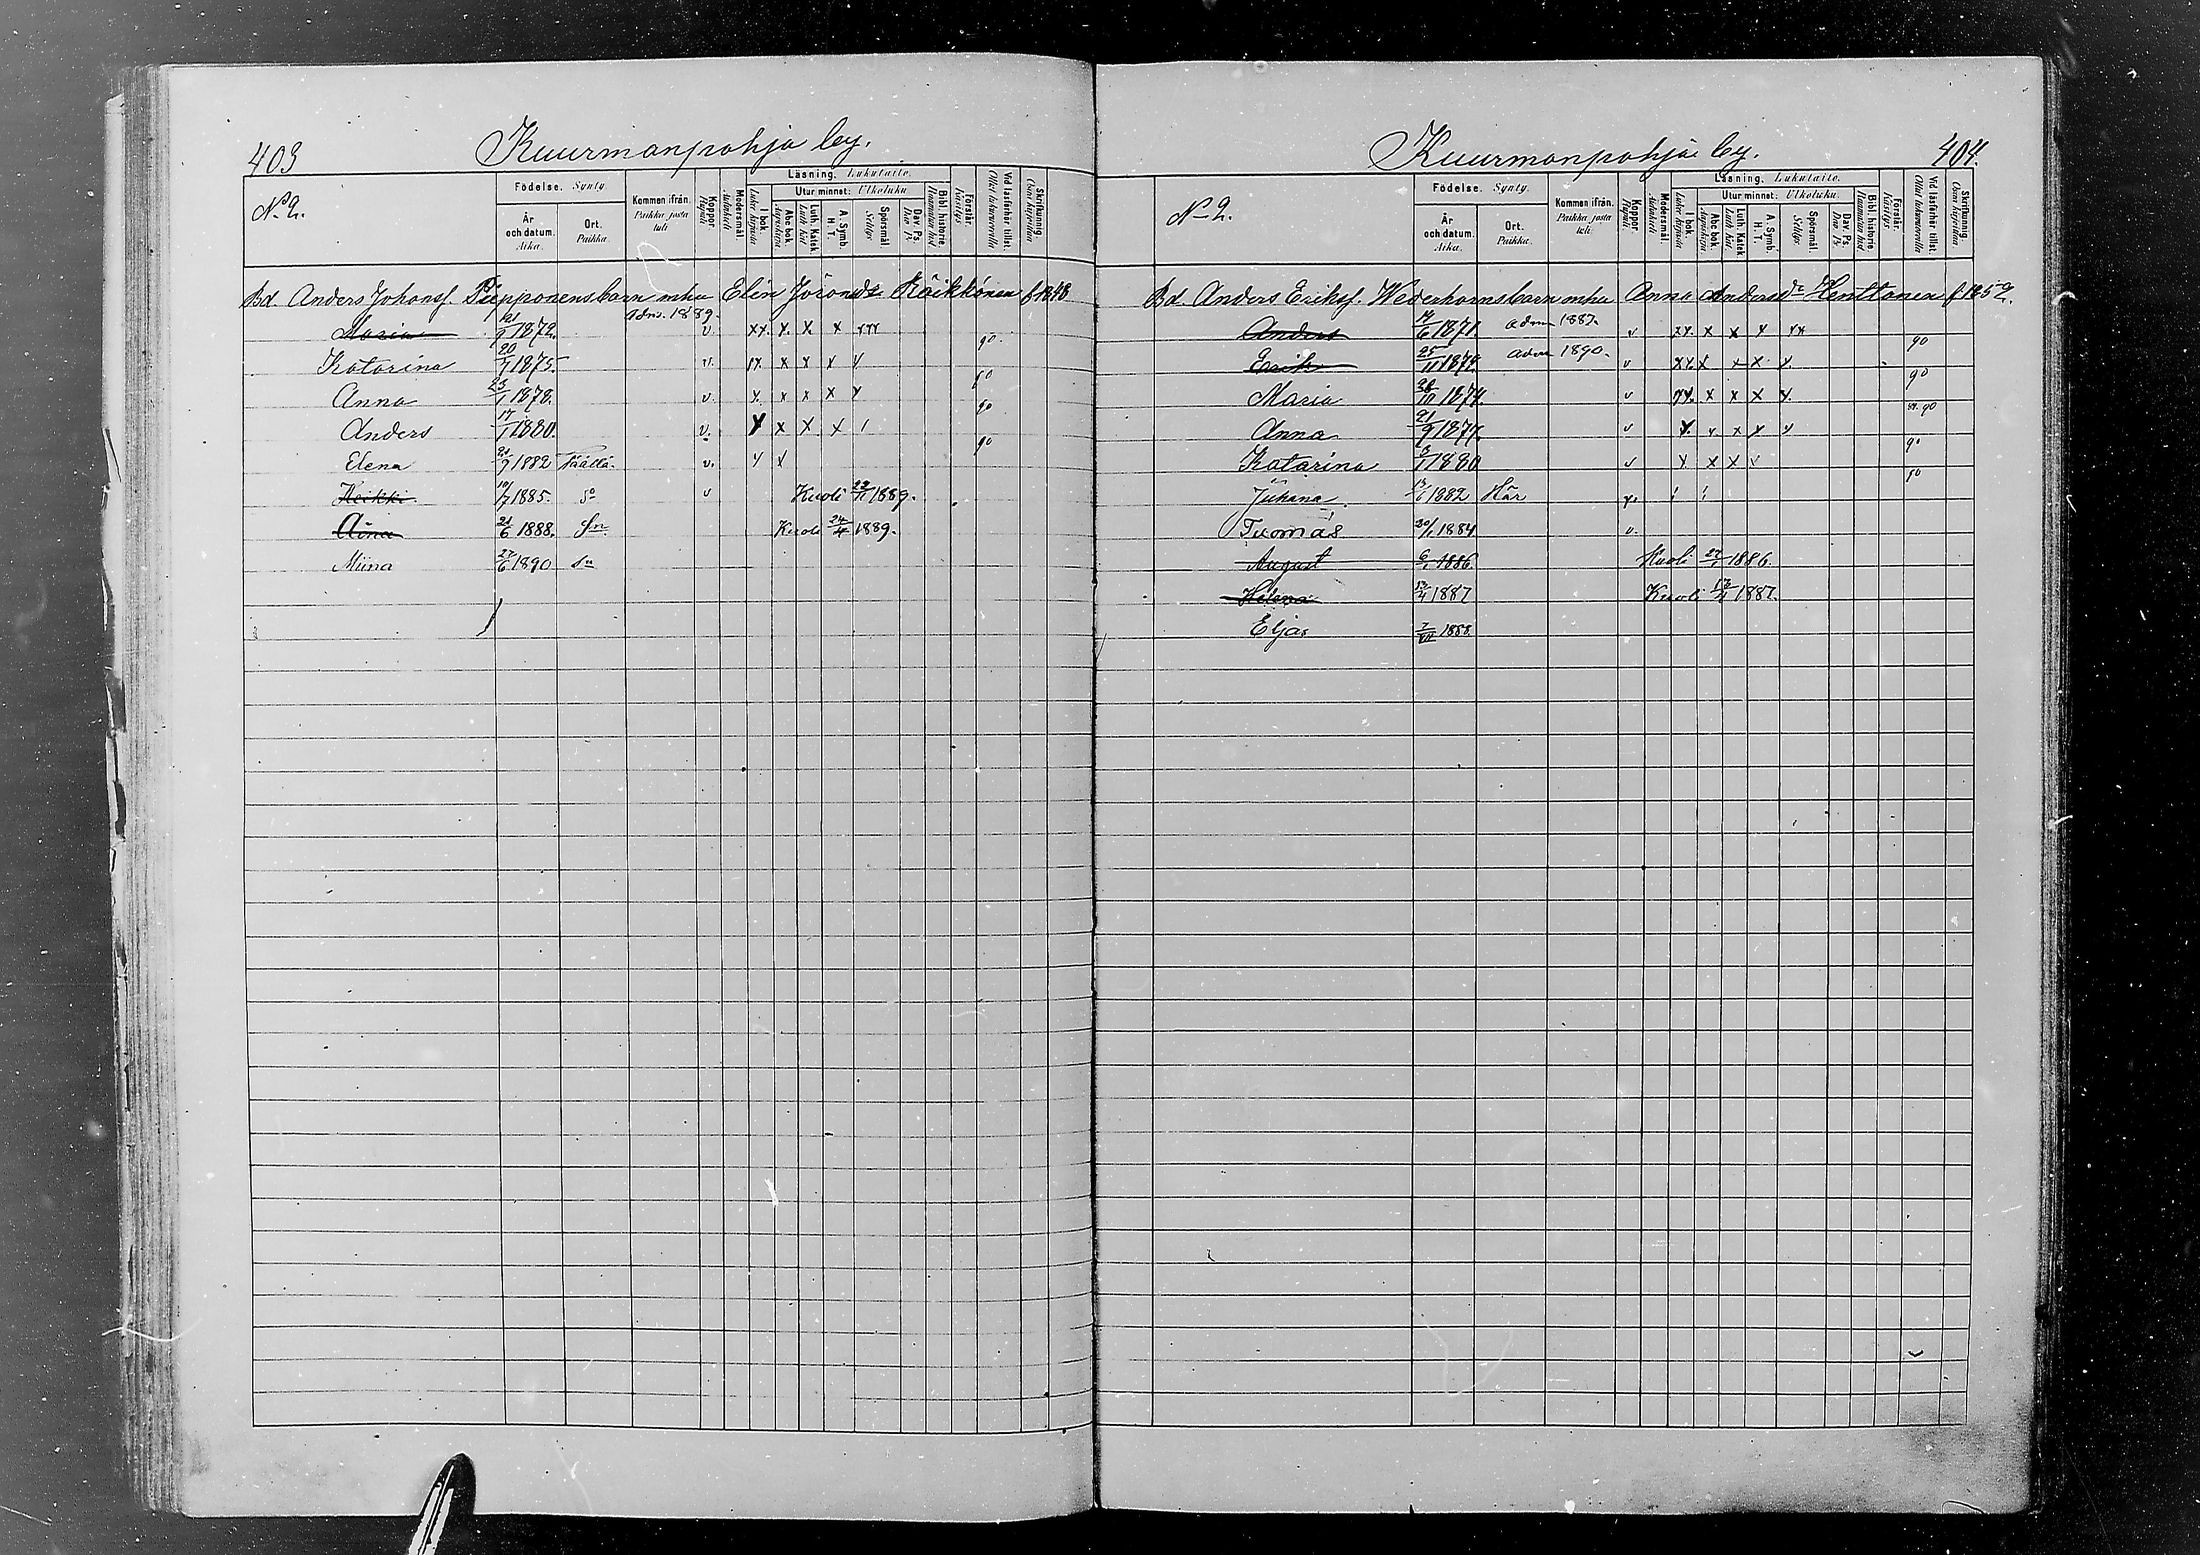 403
Kuurmanpohja by.
No 2.
Födelse. Synty.
År och datum. Aika.
Ort. Paikka.
Kommen ifrån. Paikka josta tuli
Koppor. Rupuli
Modersmål. Äidinkieli
Läsning. Lukutaito.
I bok. Lukee kirjasta
Utur minnet: Ulkoluku
Abc bok. Aapiskirja
Luth. Katek. Luth. kat.
A. Symb. H. T.
Spörsmål Selitys
Dav. Ps. Dav. Ps.
Bibl. historie. Raamatun hist.
Förstår. Käsitys.
Vid läsförhör tillst. Ollut lukuvuorolla
Skriftkunnig. Osaa kirjoittaa
Bd. Anders Johansf. Pupponens barn m hu Elin Jöransdr Räikkönen f 1848
Maria 21/9 1872. Adm. 1889. v. xx. x. x x xxx 90.
Katarina 20/1 1875. v. x x x x x 90
Anna 23/1 1878. v. x. x x x x 90
Anders 17/1 1880. v. x x x. x / 90
Elena 21/9 1882 Täällä. v. x x
Heikki 10/7 1885. So v Kuoli 22/11 1889.
Aina 21/6 1888. Sn. Kuoli 24/4 1889.
Miina 27/6 1890 Sn
Kuurmanpohja by.
404.
No 2.
Födelse. Synty.
År och datum. Aika.
Ort. Paikka.
Kommen ifrån. Paikka josta tuli.
Koppor. Rupuli
Modersmål. Äidinkieli.
Läsning. Lukutaito.
I bok. Lukee kirjasta
Utur minnet: Ulkoluku.
Abc bok. Aapiskirja
Luth. Katek. Luth. kat
A. Symb. H. T.
Spörsmål. Selitys.
Dav. Ps. Dav. Ps.
Bibl. historie. Raamatun hist.
Förstår. Käsitys.
Vid läsförhör tillst. Ollut lukuvuorolla
Skriftkunnig. Osaa kirjoittaa
Bd. Anders Eriksf. Wederhorns barn m hu Anna Andersdr Henttonen f 1852.
Anders 14/6 1871. adm 1887. v xx. x x x xx 90
Erik 25/11 1872. adm 1890. v xx x x x. x. 90
Maria 26/10 1874. v xx. x x x x. 90
Anna 21/9 1877. v x. x. x x x 90
Katarina 3/1 1880 v x x x v 90
Juhana 1882 Här
Tuomas 20/1 1884 v.
August 6/1 1886. Kuoli 27/1 1886.
Helena 13/4 1887 Kuoli 13/4 1887.
Eljas 7/VII 1888.